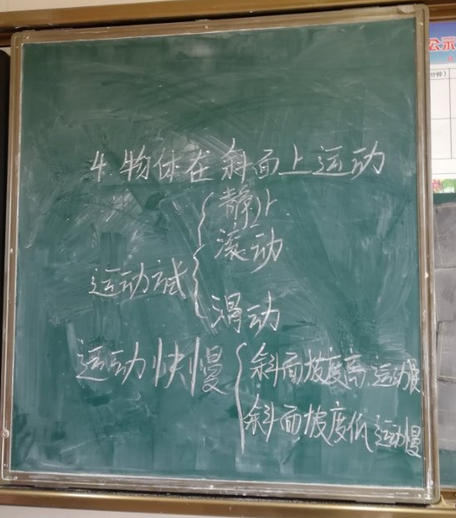 4.物体在斜面上运动
静止
滚动
运动式
滑动
运动快慢
斜面坡度高 运动快
斜面坡度低 运动慢
公示